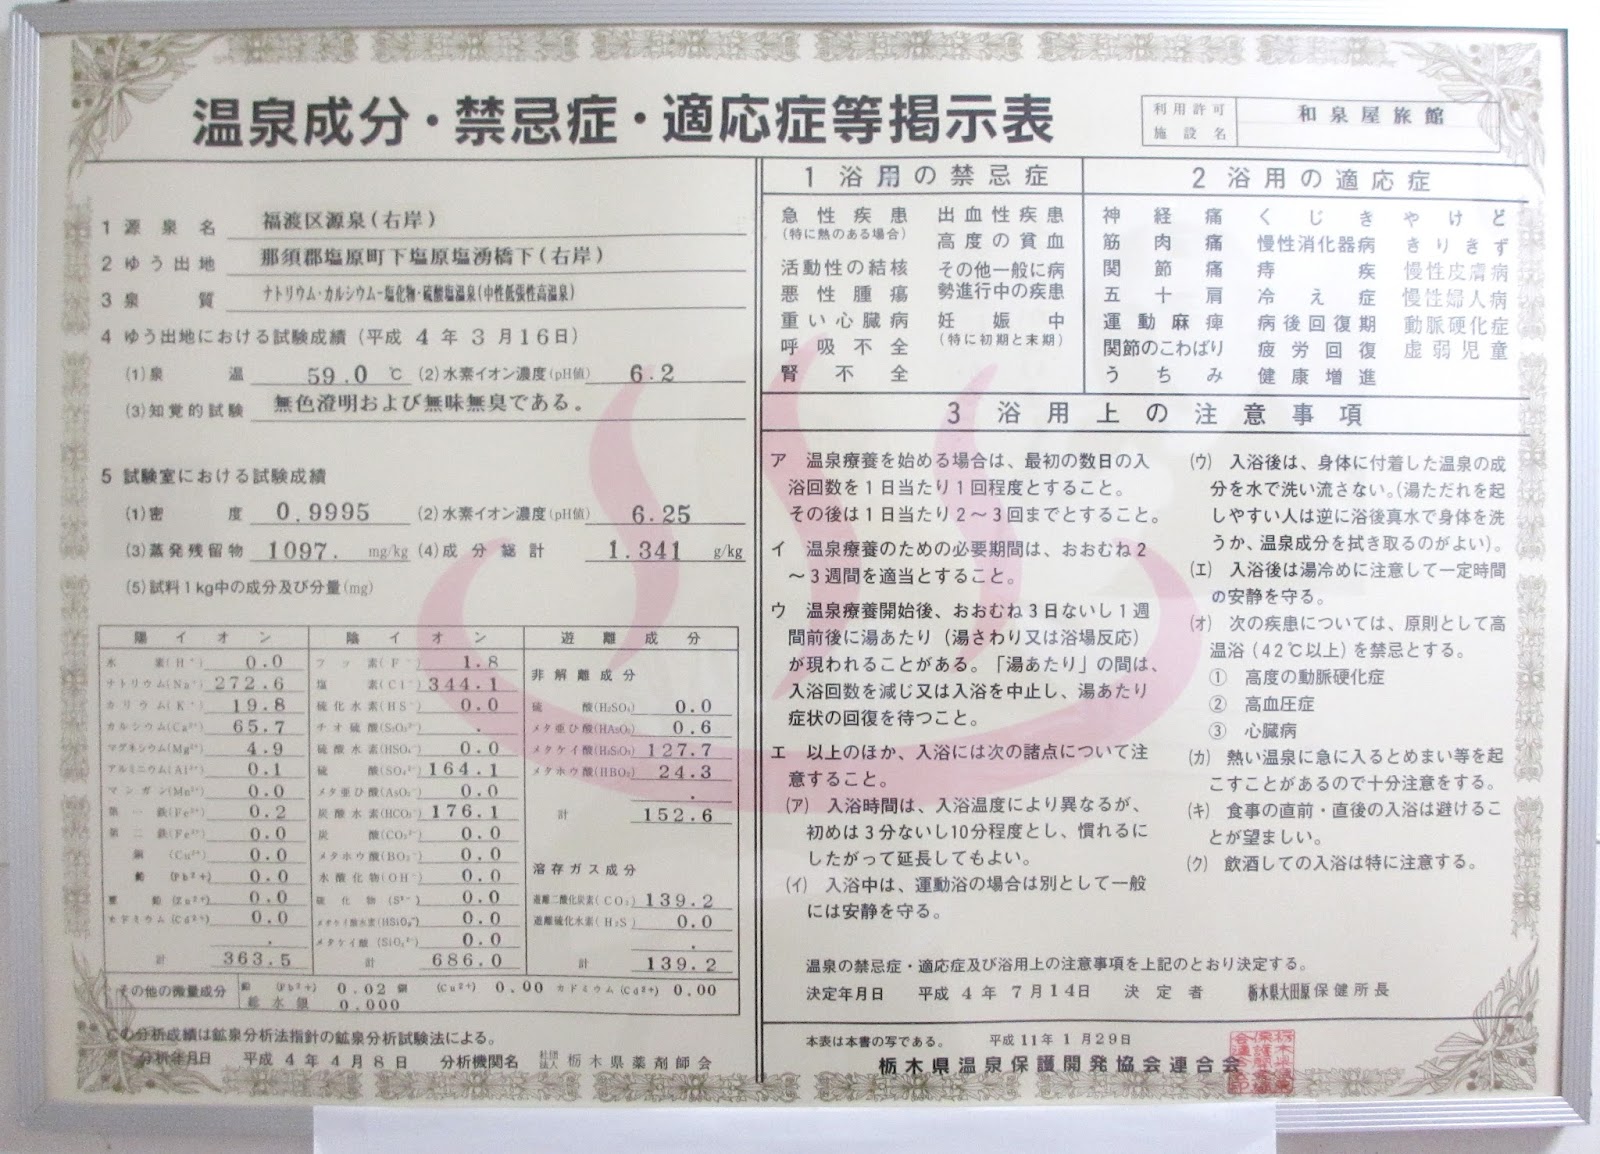 温泉成分・禁忌症・適応症等掲示表
利用許可施設名 和泉屋旅館
1 源泉名 福渡区源泉(右岸)
2 ゆう出地 那須郡塩原町下塩原塩湧橋下(右岸)
3 泉質 ナトリウム・カルシウム−塩化物・硫酸塩温泉(中性低張性高温泉)
4 ゆう出地における試験成績(平成 4 年 3 月16日)
(1)泉温 59.0 ℃ (2)水素イオン濃度(pH値) 6.2
(3)知覚的試験 無色澄明および無味無臭である。
5 試験室における試験成績
(1)密度 0.9995 (2)水素イオン濃度(pH値) 6.25
(3)蒸発残留物 1097. mg/kg (4)成分総計 1.341 g/kg
(5)試料1kg中の成分及び分量(mg)
陽イオン
水素(H⁺) 0.0
ナトリウム(Na⁺) 272.6
カリウム(K⁺) 19.8
カルシウム(Ca²⁺) 65.7
マグネシウム(Mg²⁺) 4.9
アルミニウム(Al³⁺) 0.1
マンガン(Mn²⁺) 0.0
第一鉄(Fe²⁺) 0.2
第二鉄(Fe³⁺) 0.0
銅(Cu²⁺) 0.0
鉛(Pb²⁺) 0.0
亜鉛(Zn²⁺) 0.0
カドミウム(Cd²⁺) 0.0
.
計 363.5
陰イオン
フッ素(F⁻) 1.8
塩素(Cl⁻) 344.1
硫化水素(HS⁻) 0.0
チオ硫酸(S₂O₃²⁻) .
硫酸水素(HSO₄⁻) 0.0
硫酸(SO₄²⁻) 164.1
メタ亜ひ酸(AsO₂⁻) 0.0
炭酸水素(HCO₃⁻) 176.1
炭酸(CO₃²⁻) 0.0
メタホウ酸(BO₂⁻) 0.0
水酸化物(OH⁻) 0.0
硫化物(S²⁻) 0.0
メタケイ酸水素(HSiO₃⁻) 0.0
メタケイ酸(SiO₃²⁻) 0.0
計 686.0
遊離成分
非解離成分
硫酸(H₂SO₄) 0.0
メタ亜ひ酸(HAsO₂) 0.6
メタケイ酸(H₂SiO₃) 127.7
メタホウ酸(HBO₂) 24.3
.
計 152.6
溶存ガス成分
遊離二酸化炭素(CO₂) 139.2
遊離硫化水素(H₂S) 0.0
.
計 139.2
その他の微量成分 鉛(Pb²⁺) 0.02 銅(Cu²⁺) 0.00 カドミウム(Cd²⁺) 0.00
総水銀 0.000
この分析成績は鉱泉分析法指針の鉱泉分析試験法による。
分析年月日 平成 4 年 4 月 8 日 分析機関名 社団法人 栃木県薬剤師会
1 浴用の禁忌症
急性疾患
(特に熱のある場合)
活動性の結核
悪性腫瘍
重い心臓病
呼吸不全
腎不全
出血性疾患
高度の貧血
その他一般に病
勢進行中の疾患
妊娠中
(特に初期と末期)
2 浴用の適応症
神経痛 くじき やけど
筋肉痛 慢性消化器病 きりきず
関節痛 痔疾 慢性皮膚病
五十肩 冷え症 慢性婦人病
運動麻痺 病後回復期 動脈硬化症
関節のこわばり 疲労回復 虚弱児童
うちみ 健康増進
3 浴用上の注意事項
ア 温泉療養を始める場合は、最初の数日の入
浴回数を1日当たり1回程度とすること。
その後は1日当たり2〜3回までとすること。
イ 温泉療養のための必要期間は、おおむね2
〜3週間を適当とすること。
ウ 温泉療養開始後、おおむね3日ないし1週
間前後に湯あたり(湯さわり又は浴場反応)
が現われることがある。「湯あたり」の間は、
入浴回数を減じ又は入浴を中止し、湯あたり
症状の回復を待つこと。
エ 以上のほか、入浴には次の諸点について注
意すること。
(ア) 入浴時間は、入浴温度により異なるが、
初めは3分ないし10分程度とし、慣れるに
したがって延長してもよい。
(イ) 入浴中は、運動浴の場合は別として一般
には安静を守る。
(ウ) 入浴後は、身体に付着した温泉の成
分を水で洗い流さない。(湯ただれを起
しやすい人は逆に浴後真水で身体を洗
うか、温泉成分を拭き取るのがよい)。
(エ) 入浴後は湯冷めに注意して一定時間
の安静を守る。
(オ) 次の疾患については、原則として高
温浴(42℃以上)を禁忌とする。
① 高度の動脈硬化症
② 高血圧症
③ 心臓病
(カ) 熱い温泉に急に入るとめまい等を起
こすことがあるので十分注意をする。
(キ) 食事の直前・直後の入浴は避けるこ
とが望ましい。
(ク) 飲酒しての入浴は特に注意する。
温泉の禁忌症・適応症及び浴用上の注意事項を上記のとおり決定する。
決定年月日 平成 4 年 7 月14日 決定者 栃木県大田原保健所長
本表は本書の写である。 平成11年 1 月29日
栃木県温泉保護開発協会連合会